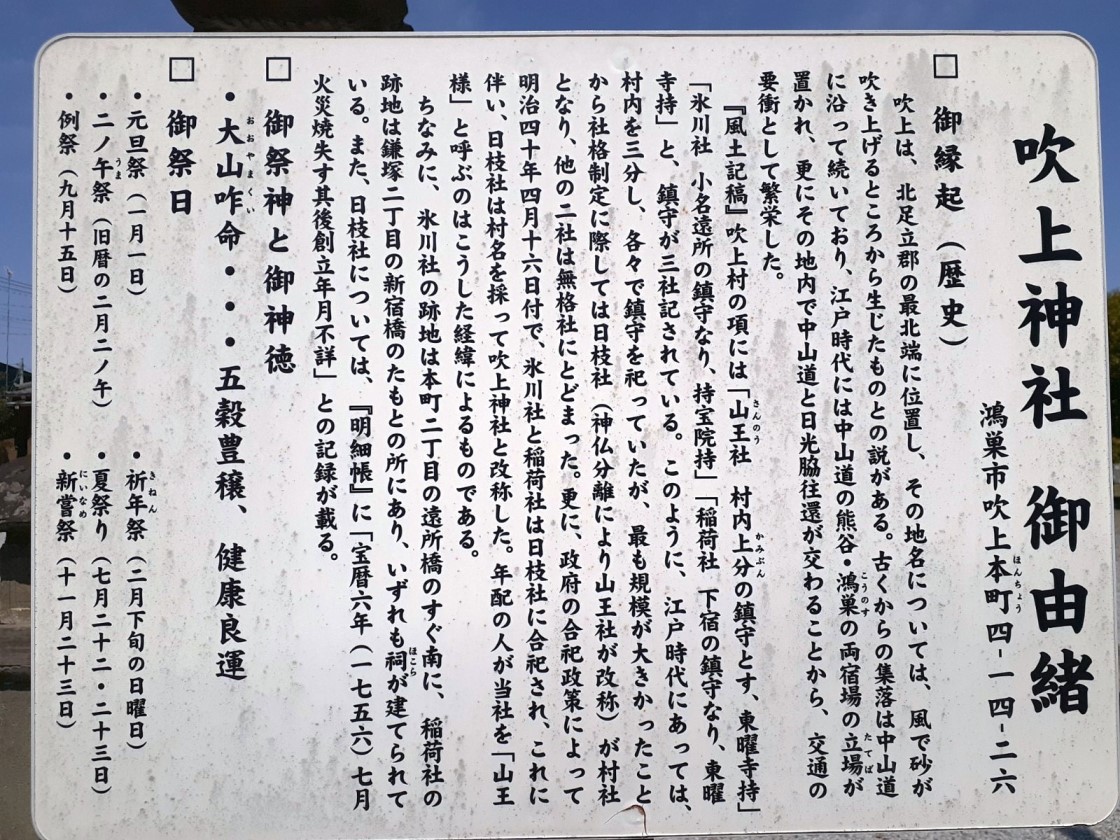 吹上神社 御由緒
鴻巣市吹上本町四-一四-二六
□ 御縁起（歴史）
吹上は、北足立郡の最北端に位置し、その地名については、風で砂が
吹き上げるところから生じたものとの説がある。古くからの集落は中山道
に沿って続いており、江戸時代には中山道の熊谷・鴻巣の両宿場の立場が
置かれ、更にその地内で中山道と日光脇往還が交わることから、交通の
要衝として繁栄した。
『風土記稿』吹上村の項には「山王社 村内上分の鎮守とす、東曜寺持」
「氷川社 小名遠所の鎮守なり、持宝院持」「稲荷社 下宿の鎮守なり、東曜
寺持」と、鎮守が三社記されている。このように、江戸時代にあっては、
村内を三分し、各々で鎮守を祀っていたが、最も規模が大きかったこと
から社格制定に際しては日枝社（神仏分離により山王社が改称）が村社
となり、他の二社は無格社にとどまった。更に、政府の合祀政策によって
明治四十年四月十六日付で、氷川社と稲荷社は日枝社に合祀され、これに
伴い、日枝社は村名を採って吹上神社と改称した。年配の人が当社を「山王
様」と呼ぶのはこうした経緯によるものである。
ちなみに、氷川社の跡地は本町二丁目の遠所橋のすぐ南に、稲荷社の
跡地は鎌塚二丁目の新宿橋のたもとの所にあり、いずれも祠が建てられて
いる。また、日枝社については、『明細帳』に「宝暦六年（一七五六）七月
火災焼失す其後創立年月不詳」との記録が載る。
□ 御祭神と御神徳
・大山咋命・・・五穀豊穣、健康良運
□ 御祭日
・元旦祭（一月一日） ・祈年祭（二月下旬の日曜日）
・二ノ午祭（旧暦の二月二ノ午） ・夏祭り（七月二十二・二十三日）
・例祭（九月十五日） ・新嘗祭（十一月二十三日）